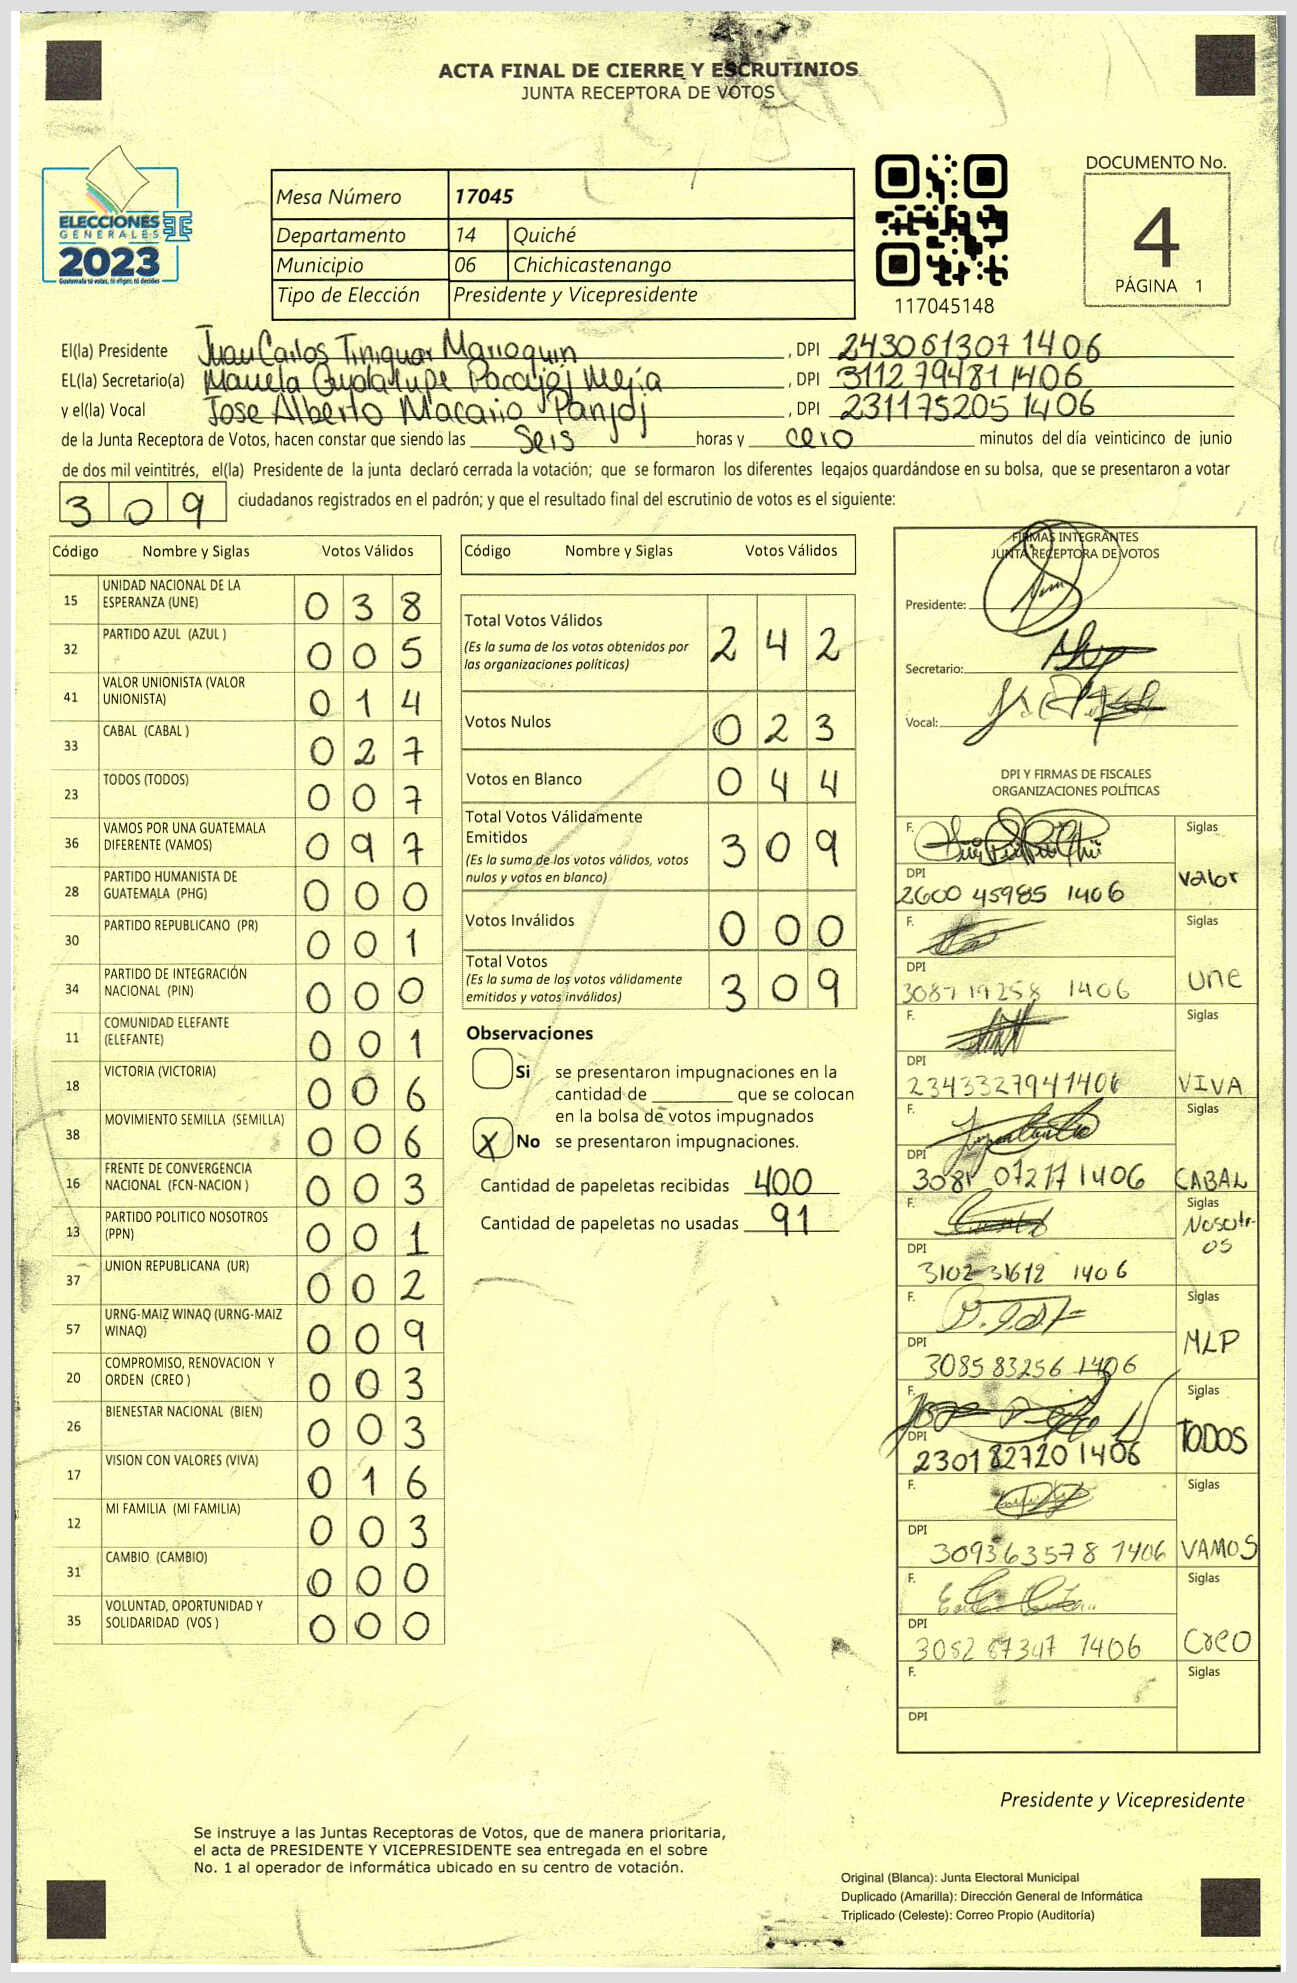 ACTA FINAL DE CIERRE Y ESCRUTINIOS
JUNTA RECEPTORA DE VOTOS
ELECCIONES
GENERALES
2023
Guatemala tú votas, tú eliges, tú decides
Mesa Número 17045
Departamento 14 Quiché
Municipio 06 Chichicastenango
Tipo de Elección Presidente y Vicepresidente
117045148
DOCUMENTO No.
4
PÁGINA 1
El(la) Presidente Juan Carlos Tiniguar Marroquin, DPI 243061307 1406
EL(la) Secretario(a) Manuela Guadalupe Pacajoj Mejía, DPI 3112 79481 1406
y el(la) Vocal Jose Alberto Macario Panjoj, DPI 231175205 1406
de la Junta Receptora de Votos, hacen constar que siendo las seis horas y cero minutos del día veinticinco de junio
de dos mil veintitrés, el(la) Presidente de la junta declaró cerrada la votación; que se formaron los diferentes legajos guardándose en su bolsa, que se presentaron a votar
309 ciudadanos registrados en el padrón; y que el resultado final del escrutinio de votos es el siguiente:
Código Nombre y Siglas Votos Válidos
15 UNIDAD NACIONAL DE LA ESPERANZA (UNE) 038
32 PARTIDO AZUL (AZUL ) 005
41 VALOR UNIONISTA (VALOR UNIONISTA) 014
33 CABAL (CABAL ) 027
23 TODOS (TODOS) 007
36 VAMOS POR UNA GUATEMALA DIFERENTE (VAMOS) 097
28 PARTIDO HUMANISTA DE GUATEMALA (PHG) 000
30 PARTIDO REPUBLICANO (PR) 001
34 PARTIDO DE INTEGRACIÓN NACIONAL (PIN) 000
11 COMUNIDAD ELEFANTE (ELEFANTE) 001
18 VICTORIA (VICTORIA) 006
38 MOVIMIENTO SEMILLA (SEMILLA) 006
16 FRENTE DE CONVERGENCIA NACIONAL (FCN-NACION ) 003
13 PARTIDO POLITICO NOSOTROS (PPN) 001
37 UNION REPUBLICANA (UR) 002
57 URNG-MAIZ WINAQ (URNG-MAIZ WINAQ) 009
20 COMPROMISO, RENOVACION Y ORDEN (CREO ) 003
26 BIENESTAR NACIONAL (BIEN) 003
17 VISION CON VALORES (VIVA) 016
12 MI FAMILIA (MI FAMILIA) 003
31 CAMBIO (CAMBIO) 000
35 VOLUNTAD, OPORTUNIDAD Y SOLIDARIDAD (VOS ) 000
Código Nombre y Siglas Votos Válidos
Total Votos Válidos 242
(Es la suma de los votos obtenidos por
las organizaciones políticas)
Votos Nulos 023
Votos en Blanco 044
Total Votos Válidamente
Emitidos 309
(Es la suma de los votos válidos, votos
nulos y votos en blanco)
Votos Inválidos 000
Total Votos 309
(Es la suma de los votos válidamente
emitidos y votos inválidos)
Observaciones
Si se presentaron impugnaciones en la
cantidad de ________ que se colocan
en la bolsa de votos impugnados
X No se presentaron impugnaciones.
Cantidad de papeletas recibidas 400
Cantidad de papeletas no usadas 91
FIRMAS INTEGRANTES
JUNTA RECEPTORA DE VOTOS
Presidente:
Secretario:
Vocal:
DPI Y FIRMAS DE FISCALES
ORGANIZACIONES POLÍTICAS
F. Siglas
DPI 2600 45985 1406 Valor
F. Siglas
DPI 3087 19258 1406 Une
F. Siglas
DPI 234332794 1406 VIVA
F. Siglas
DPI 3081 07217 1406 CABAL
F. Siglas
DPI 3102 31612 1406 Nosotr-
os
F. Siglas
DPI 3085 83256 1406 MLP
F. Siglas
DPI 2301 82720 1406 TODOS
F. Siglas
DPI 309363578 1406 VAMOS
F. Siglas
DPI 3082 87347 1406 Creo
F. Siglas
DPI
Presidente y Vicepresidente
Se instruye a las Juntas Receptoras de Votos, que de manera prioritaria,
el acta de PRESIDENTE Y VICEPRESIDENTE sea entregada en el sobre
No. 1 al operador de informática ubicado en su centro de votación.
Original (Blanca): Junta Electoral Municipal
Duplicado (Amarilla): Dirección General de Informática
Triplicado (Celeste): Correo Propio (Auditoría)